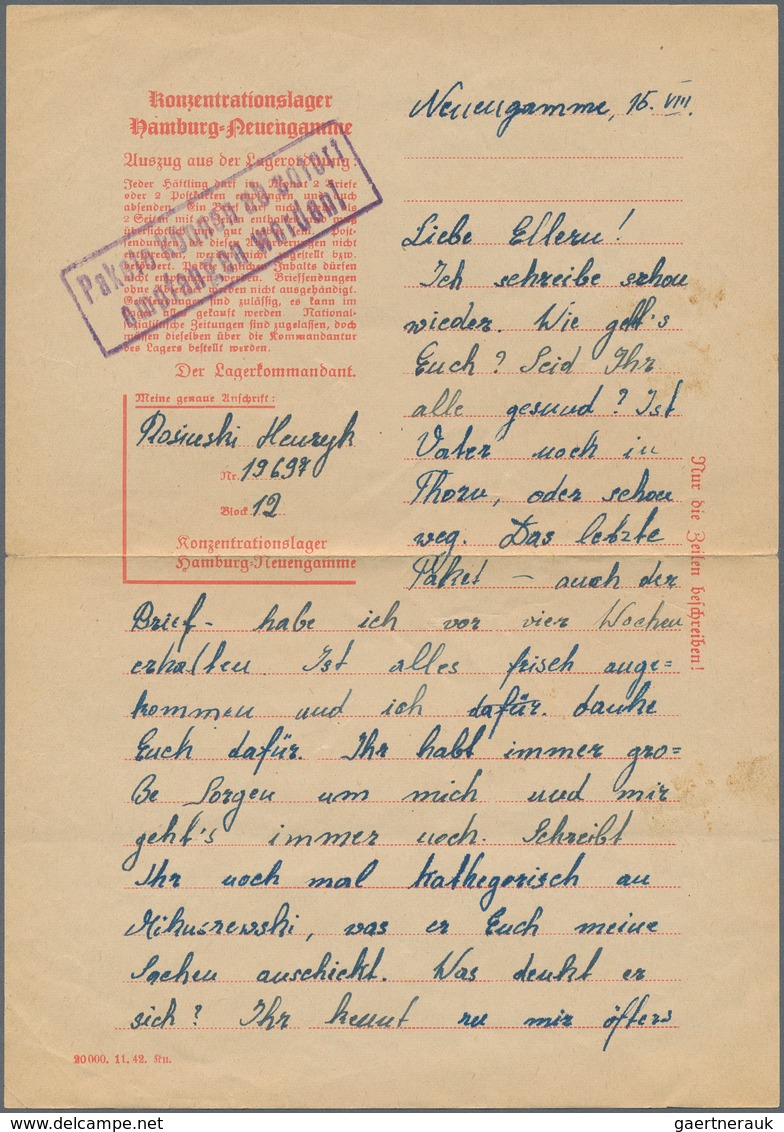 Konzentrationslager
Hamburg-Neuengamme
Auszug aus der Lagerordnung:
Jeder Häftling darf im Monat 2 Briefe
oder 2 Postkarten empfangen und auch
absenden. Ein
2 Seiten mit
und gut
sendungen
nicht
Inhalts dürfen
nicht Briefsendungen
ohne werden nicht ausgehändigt.
sind zulässig, es kann im
gekauft werden. National-
sozialistische Zeitungen sind zugelassen, doch
müssen dieselben über die Kommandantur
des Lagers bestellt werden.
Der Lagerkommandant.
Pakete können ab sofort
empfangen werden!
Meine genaue Anschrift:
Rosinski Henryk
Nr. 19697
Block 12
Konzentrationslager
Hamburg-Neuengamme
Neuengamme, 15. VIII.
Liebe Eltern!
Ich schreibe schon
wieder. Wie geht's
Euch? Seid Ihr
alle gesund? Ist
Vater noch in
Thorn, oder schon
weg. Das letzte
Paket – auch der
Brief – habe ich vor vier Wochen
erhalten. Ist alles frisch ange=
kommen und ich dafür. danke
Euch dafür. Ihr habt immer gro=
ße Sorgen um mich und mir
geht's immer noch. Schreibt
Ihr noch mal kathegorisch an
Mikuszewski, was er Euch meine
Sachen anschickt. Was denkt er
sich? Ihr kennt zu mir öfters
Nur die Zeilen beschreiben!
20000. 11. 42. Ku.
delcampe.net
gaertnerauk